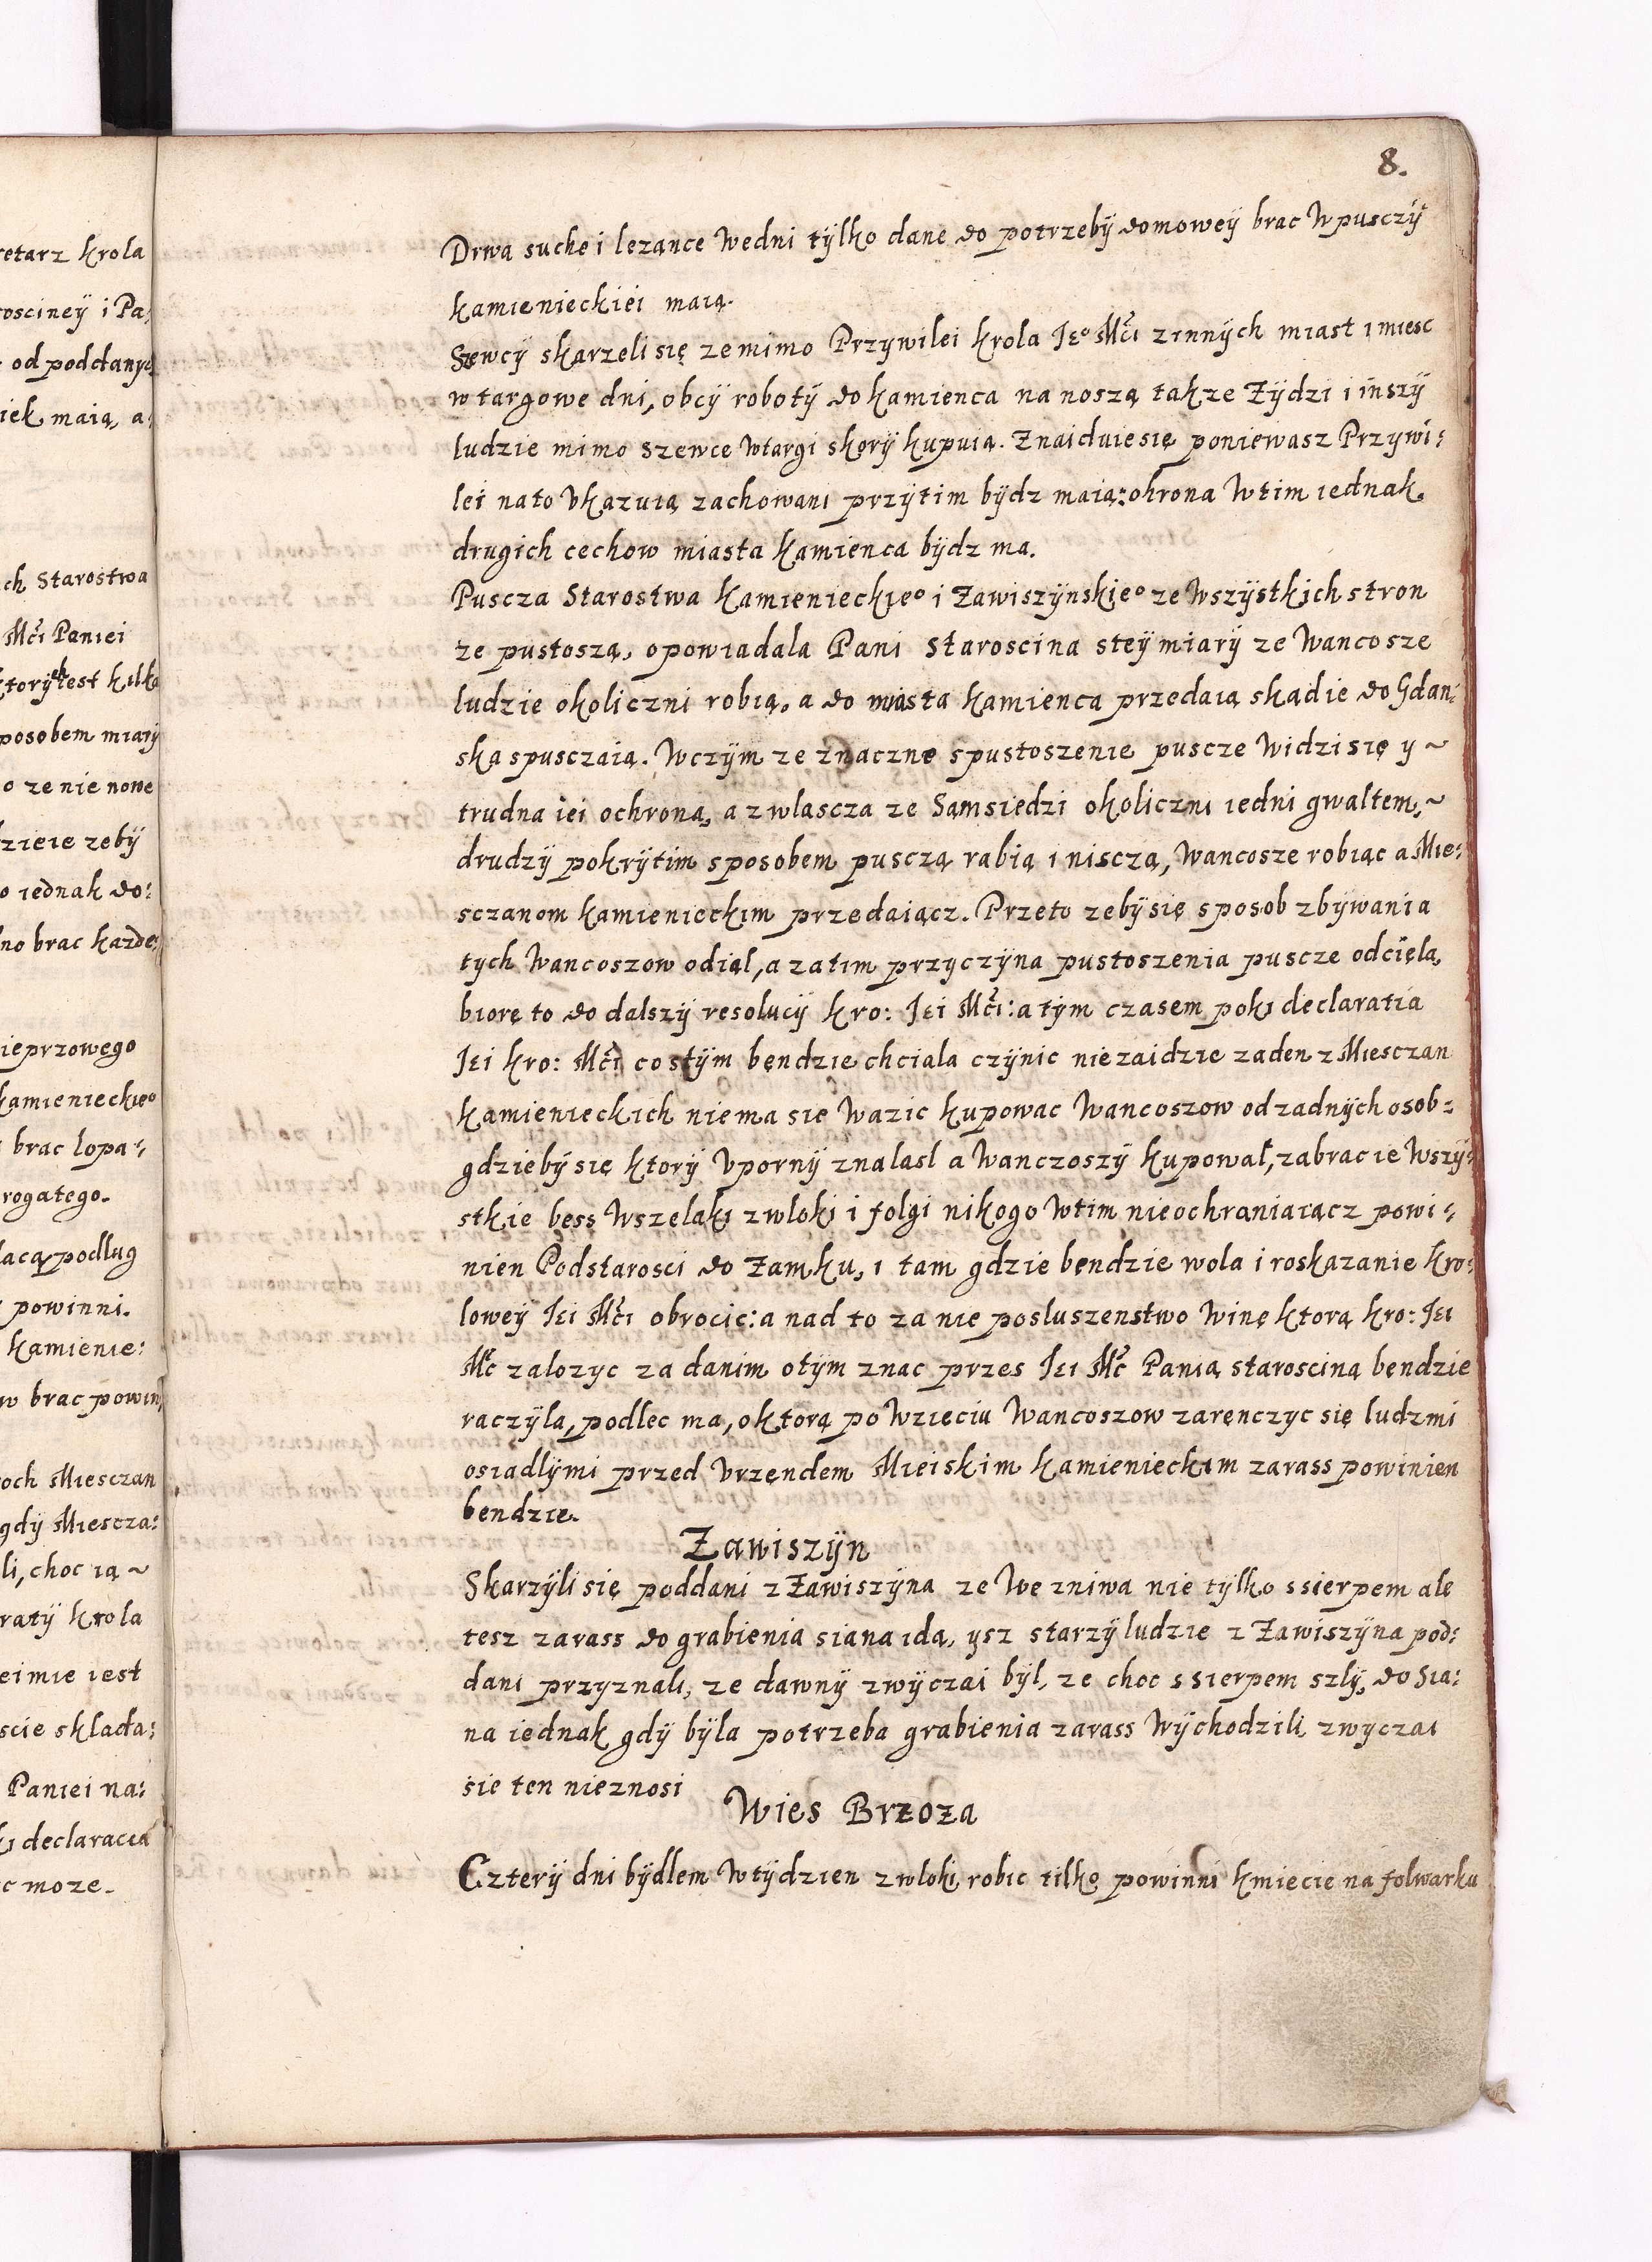 8.
Drwa suche i lezance wedni tÿlko dane do potrzebÿ domoweÿ brac w pusczÿ
kamienieckiei maią.
Szewcÿ skarzeli się ze mimo Przywilei krola Ieº Mći z innÿch miast i miesc
w targowe dni, obcÿ robotÿ do kamienca na noszą takze Zÿdzi i inszÿ
ludzie mimo szewce w targi skorÿ kupuią. Znaiduie się poniewasz Przywi:
lei na to vkazuią zachowani przÿtim bÿdz maią: ohrona w tim iednak
drugich cechow miasta kamienca bÿdz ma.
Puscza Starostwa kamienieckieº i Zawiszÿnskieº ze wszÿstkich stron
ze pustoszą, opowiadala Pani Staroscina steÿ miarÿ ze wancosze
ludzie okoliczni robią, a do miasta kamienca przedaią skądie do Gdan:
ska spusczaią. W czÿm ze znaczne spustoszenie puscze widzi się y ~
trudna iei ochrona, a zwlascza ze Sąmsiedzi okoliczni iedni gwaltem, ~
drudzÿ pokrÿtim sposobem pusczą rabią i nisczą, wancosze robiąc a Mie:
sczanom kamienieckim przedaiącz. Przeto zebÿ się sposob zbÿwania
tych wancoszow odiąl, a zatim przyczÿna pustoszenia puscze odcięla,
biorę to do dalszÿ resolucÿ kro: Iei Mći: a tÿm czasem poki declaratia
Iei kro: Mći co stÿm bendzie chciala czÿnic nie zaidzie zaden z Miesczan
kamienieckich nie ma sie wazic kupowac wancoszow od zadnÿch osob:
gdziebÿ się ktorÿ vpornÿ znalasl a wanczoszÿ kupowal, zabrac ie wszÿ:
stkie bess wszelaki zwloki i folgi nikogo w tim nieochraniaiącz powi:
nien Podstarosci do zamku, i tam gdzie bęndzie wola i roskazanie kro:
lowey Iei Mći obrocic: a nad to za nie posluszenstwo winę ktorą kro: Iei
Mć zalozyc za danim otÿm znac przes Iei Mć Panią staroscinę bendzie
raczÿla, podlec ma, o ktorą po wzięciu wancoszow zaręnczyc się ludzmi
osiadlÿmi przed vrzęndem Mieiskim kamienieckim zarass powinien
bendzie.
Zawiszÿn
Skarzÿli się poddani z Zawiszÿna ze we zniwa nie tÿlko s sierpem ale
tesz zarass do grabienia siana idą, ysz starzÿ ludzie z Zawiszÿna pod:
dani przyznali, ze dawnÿ zwÿczai bÿl, ze choc s sierpem szlÿ, do sia:
na iednak gdÿ bÿla potrzeba grabienia zarass wÿchodzili, zwyczai
sie ten nieznosi
Wies Brzoza
Czterÿ dni bÿdlem w tÿdzien z wloki robic tilko powinni kmiecie na folwarku